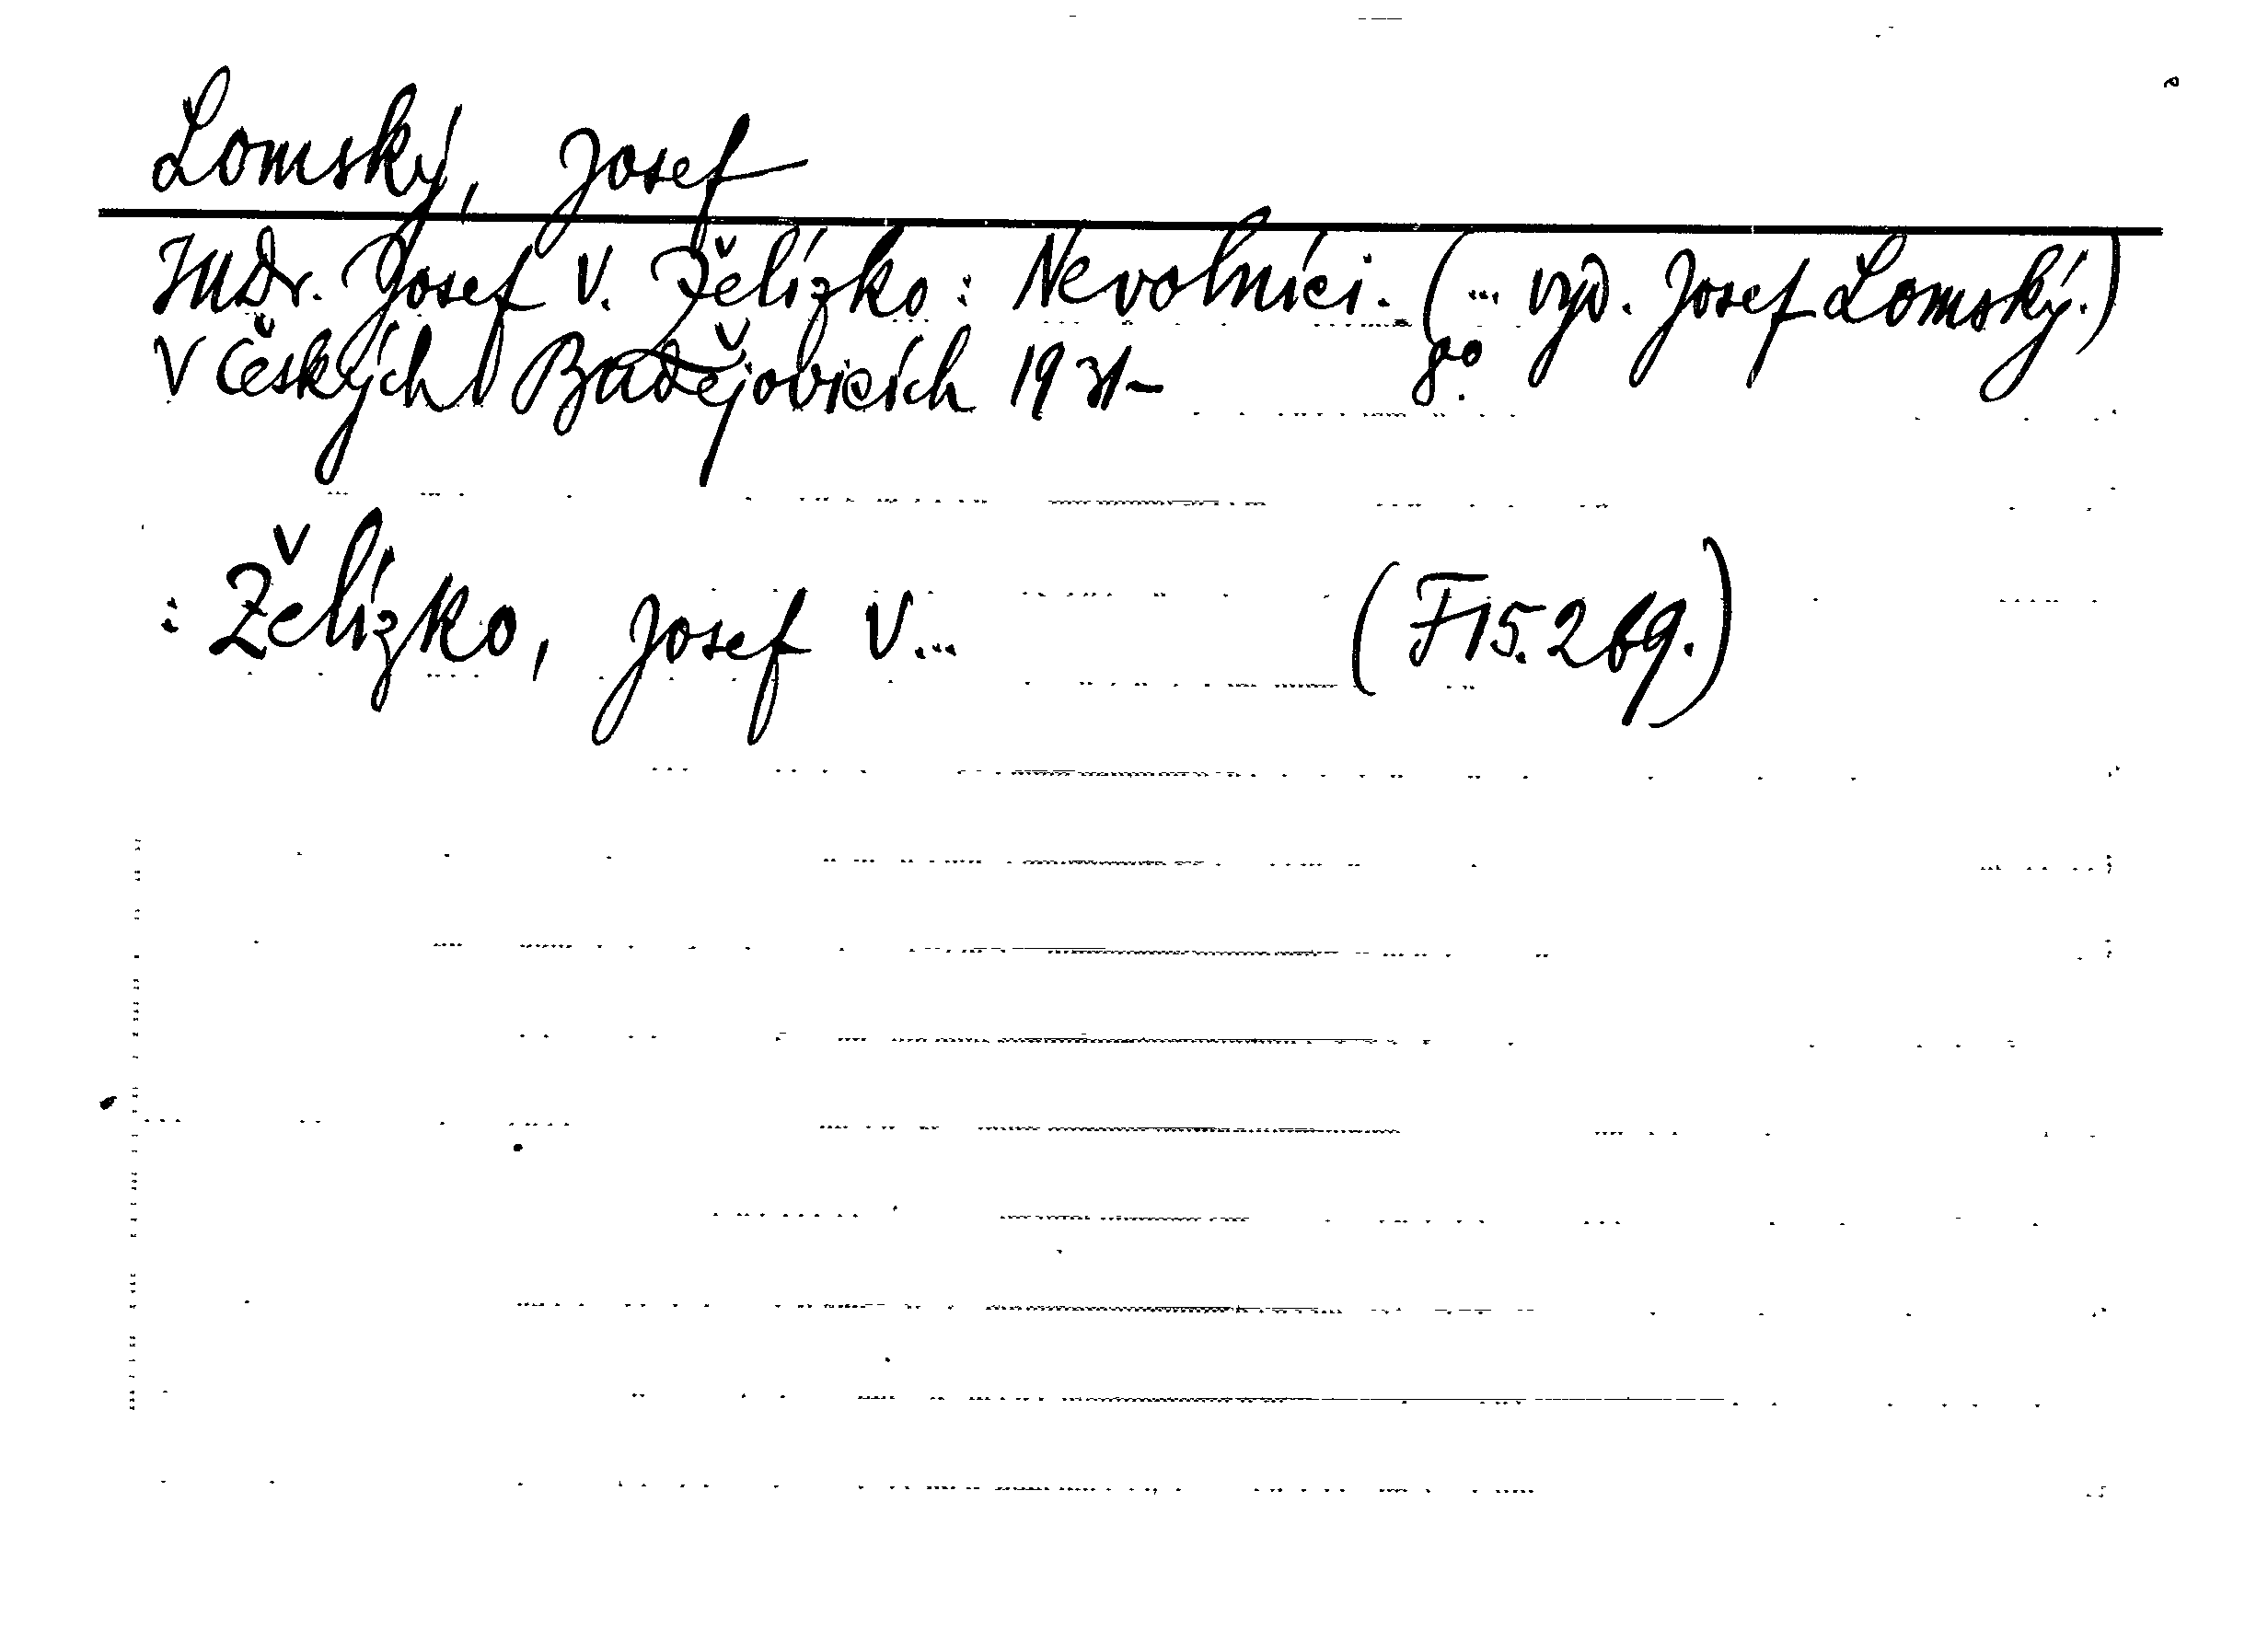 Lomský, Josef
JUDr. Josef V. Želízko: Nevolníci. (... vyd. Josef Lomský.)
V Českých Budějovicích 1931 – 8°.
: Želízko, Josef V... (F15.269.)